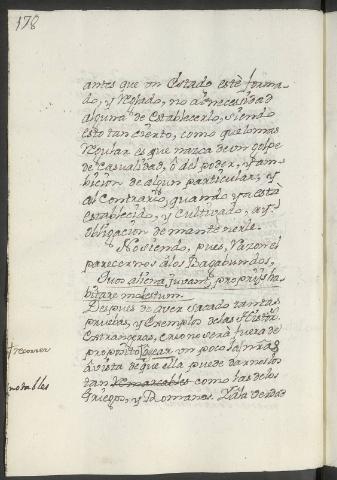 178
antes que un Estado estè forma-
do, y Reglado, no ai necesidad
alguna de Establecerlo, siendo
esto tan cierto, como que lo mas
Regular es que nazca de un golpe
de Casualidad, ô del poder, y am-
bicion de algun particular, y
al Contrario, quando ya està
establecido, y cultivado, ay
obligacion de mantenerle.
No siendo, pues, Razon el
parecernos â los Bagabundos,
Quos aliena juvant, proprijs ha-
bitare molestum.
Despues de aver sacado tantas
pruebas, y Exemplos de las Histas.
Estrangeras, creo no serà fuera de
proposito tocar un poco la nrã
trecorrer
â vista de que ella puede darnoslos
tan Remarcables como las de los
notables
Griegos, y Romanos. Y â la Verdad